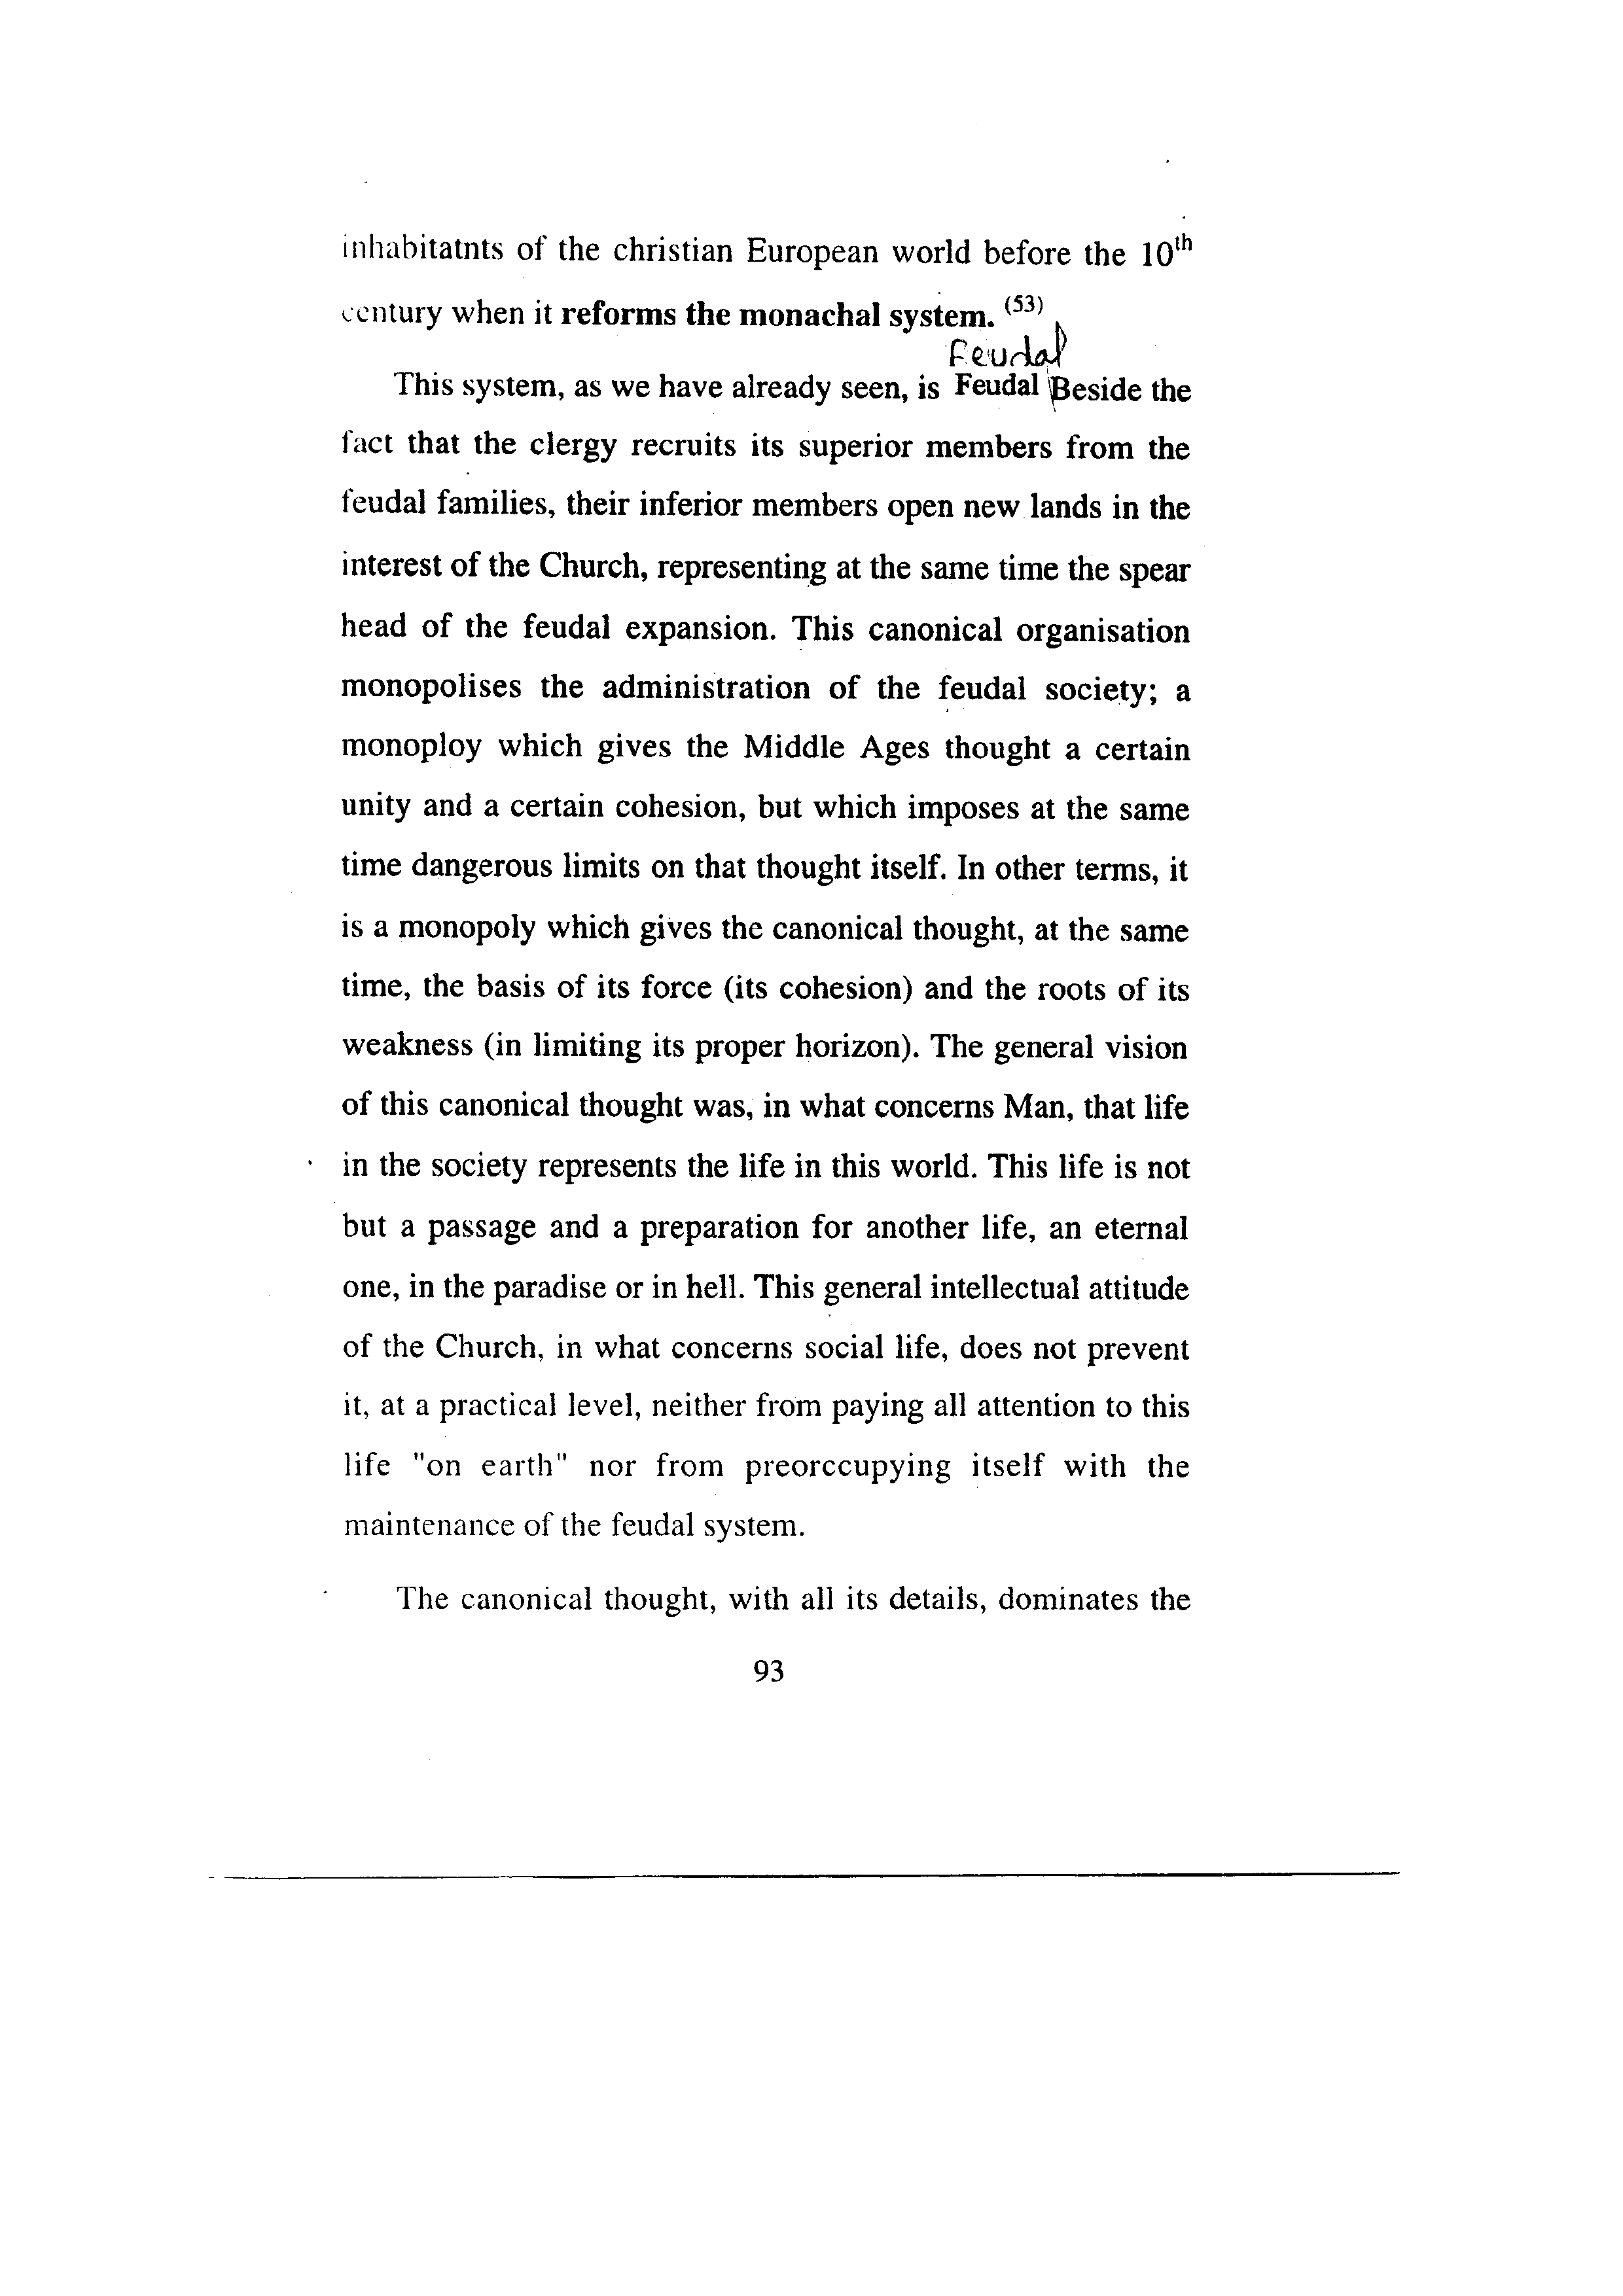 inhabitatnts of the christian European world before the 10th
century when it reforms the monachal system. (53)
Feudal
This system, as we have already seen, is Feudal Beside the
fact that the clergy recruits its superior members from the
feudal families, their inferior members open new lands in the
interest of the Church, representing at the same time the spear
head of the feudal expansion. This canonical organisation
monopolises the administration of the feudal society; a
monoploy which gives the Middle Ages thought a certain
unity and a certain cohesion, but which imposes at the same
time dangerous limits on that thought itself. In other terms, it
is a monopoly which gives the canonical thought, at the same
time, the basis of its force (its cohesion) and the roots of its
weakness (in limiting its proper horizon). The general vision
of this canonical thought was, in what concerns Man, that life
in the society represents the life in this world. This life is not
but a passage and a preparation for another life, an eternal
one, in the paradise or in hell. This general intellectual attitude
of the Church, in what concerns social life, does not prevent
it, at a practical level, neither from paying all attention to this
life "on earth" nor from preorccupying itself with the
maintenance of the feudal system.
The canonical thought, with all its details, dominates the
93